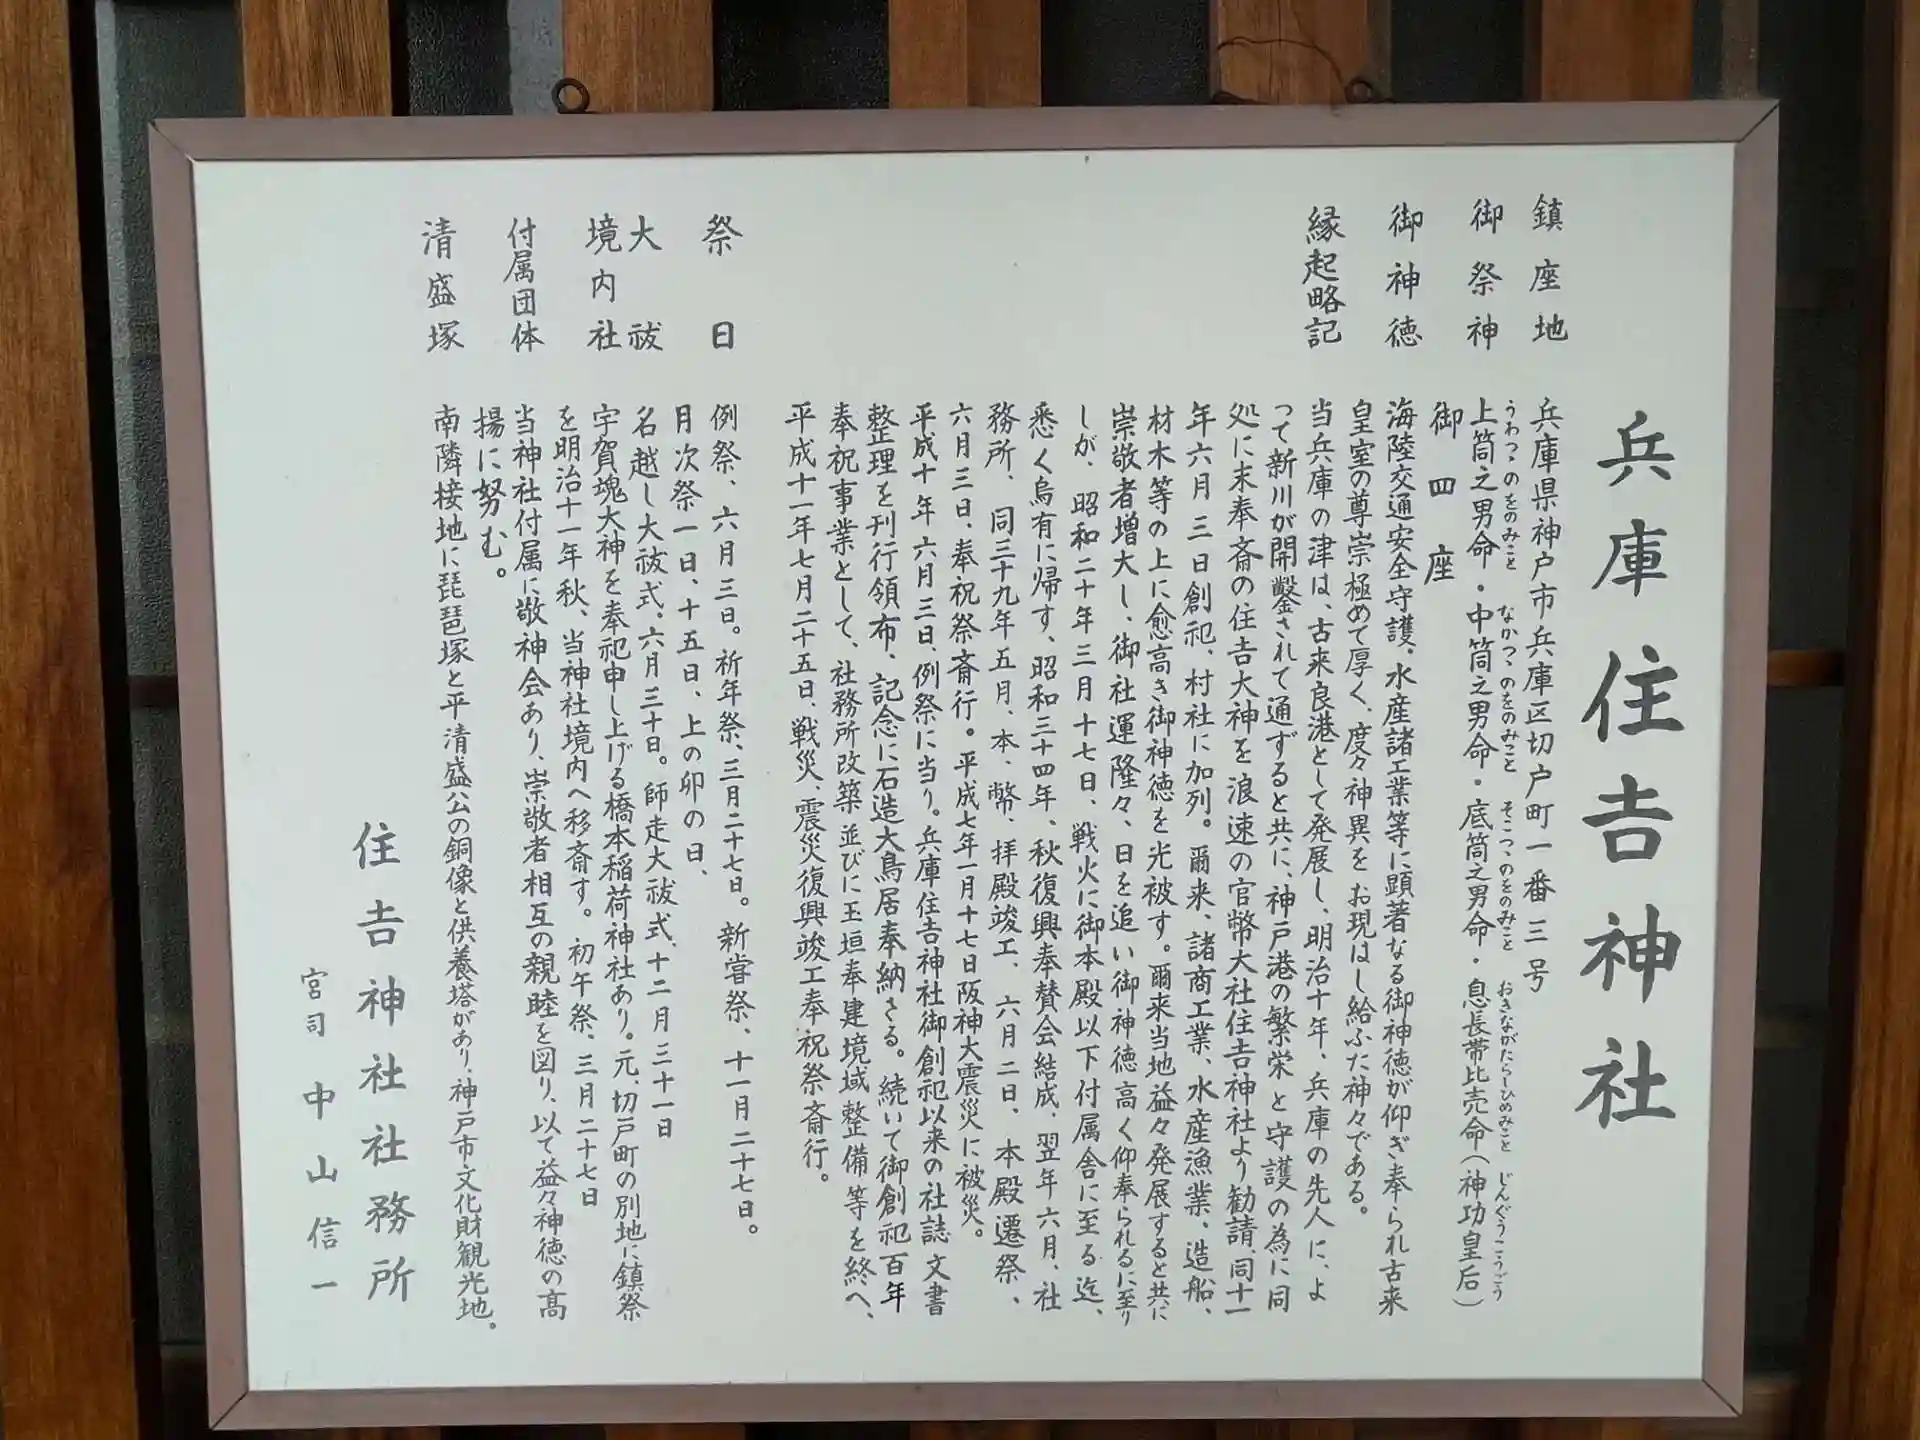 兵庫住吉神社
鎮座地
兵庫県神戸市兵庫区切戸町一番三号
御祭神
うわつゝのをのみこと なかつゝのをのみこと そこつゝのをのみこと おきながたらしひめみこと じんぐうこうごう
上筒之男命・中筒之男命・底筒之男命・息長帯比売命(神功皇后)
御四座
御神徳
海陸交通安全守護、水産諸工業等に顕著なる御神徳が仰ぎ奉られ古来
皇室の尊崇極めて厚く、度々神異をお現はし給ふた神々である。
縁起略記
当兵庫の津は、古来良港として発展し、明治十年、兵庫の先人に、よ
って新川が開鑿されて通ずると共に、神戸港の繁栄と守護の為に同
処に末奉斎の住吉大神を浪速の官幣大社住吉神社より勧請、同十一
年六月三日創祀、村社に加列。爾来、諸商工業、水産漁業、造船、
材木等の上に愈高き御神徳を光被す。爾来当地益々発展すると共に
崇敬者増大し、御社運隆々、日を追い御神徳高く仰奉られるに至り
しが、昭和二十年三月十七日、戦火に御本殿以下付属舎に至る迄、
悉く烏有に帰す、昭和三十四年、秋復興奉賛会結成、翌年六月、社
務所、同三十九年五月、本、幣、拝殿竣工、六月二日、本殿遷祭、
六月三日、奉祝祭斎行。平成七年一月十七日阪神大震災に被災。
平成十年六月三日、例祭に当り。兵庫住吉神社御創祀以来の社誌文書
整理を刊行領布、記念に石造大鳥居奉納さる。続いて御創祀百年
奉祝事業として、社務所改築並びに玉垣奉建境域整備等を終へ、
平成十一年七月二十五日、戦災、震災復興竣工奉祝祭斎行。
祭日
例祭、六月三日。祈年祭、三月二十七日。新嘗祭、十一月二十七日。
月次祭一日、十五日、上の卯の日、
大祓
名越し大祓式、六月三十日。師走大祓式、十二月三十一日
境内社
宇賀魂大神を奉祀申し上げる橋本稲荷神社あり。元、切戸町の別地に鎮祭
を明治十一年秋、当神社境内へ移斎す。初午祭、三月二十七日
付属団体
当神社付属に敬神会あり、崇敬者相互の親睦を図り、以て益々神徳の高
揚に努む。
清盛塚
南隣接地に琵琶塚と平清盛公の銅像と供養塔があり、神戸市文化財観光地。
住吉神社社務所
宮司 中山信一